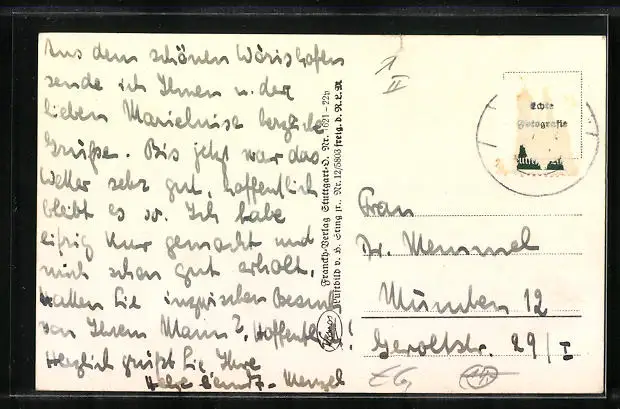 Aus dem schönen Wörishofen
sende ich Ihnen u. der
lieben Marieluise herzliche
Grüße. Bis jetzt war das
Wetter sehr gut, hoffentlich
bleibt es so. Ich habe
eifrig Kur gemacht und
mich schon gut erholt.
Hatten Sie inzwischen Besuch
von Ihrem Mann? Hoffentl.!
Herzlich grüßt Sie Ihre
Menzel
Franckh-Verlag Stuttgart-O. Nr. 1621-22v
Luftbild v. Nr. 12/5803 freig. d. R.L.M
Kosmos
II
Echte
Fotografie
Frau
Dr. Memmel
München 12
Geroltstr. 29/I